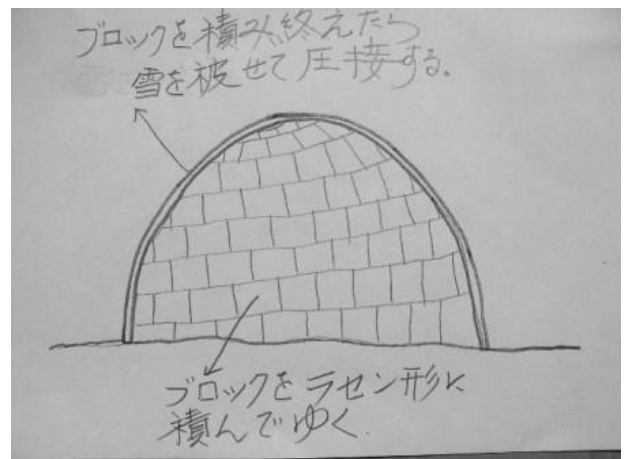 ブロックを積み終えたら
雪を被せて圧接する。
ブロックをラセン形に
積んでゆく.